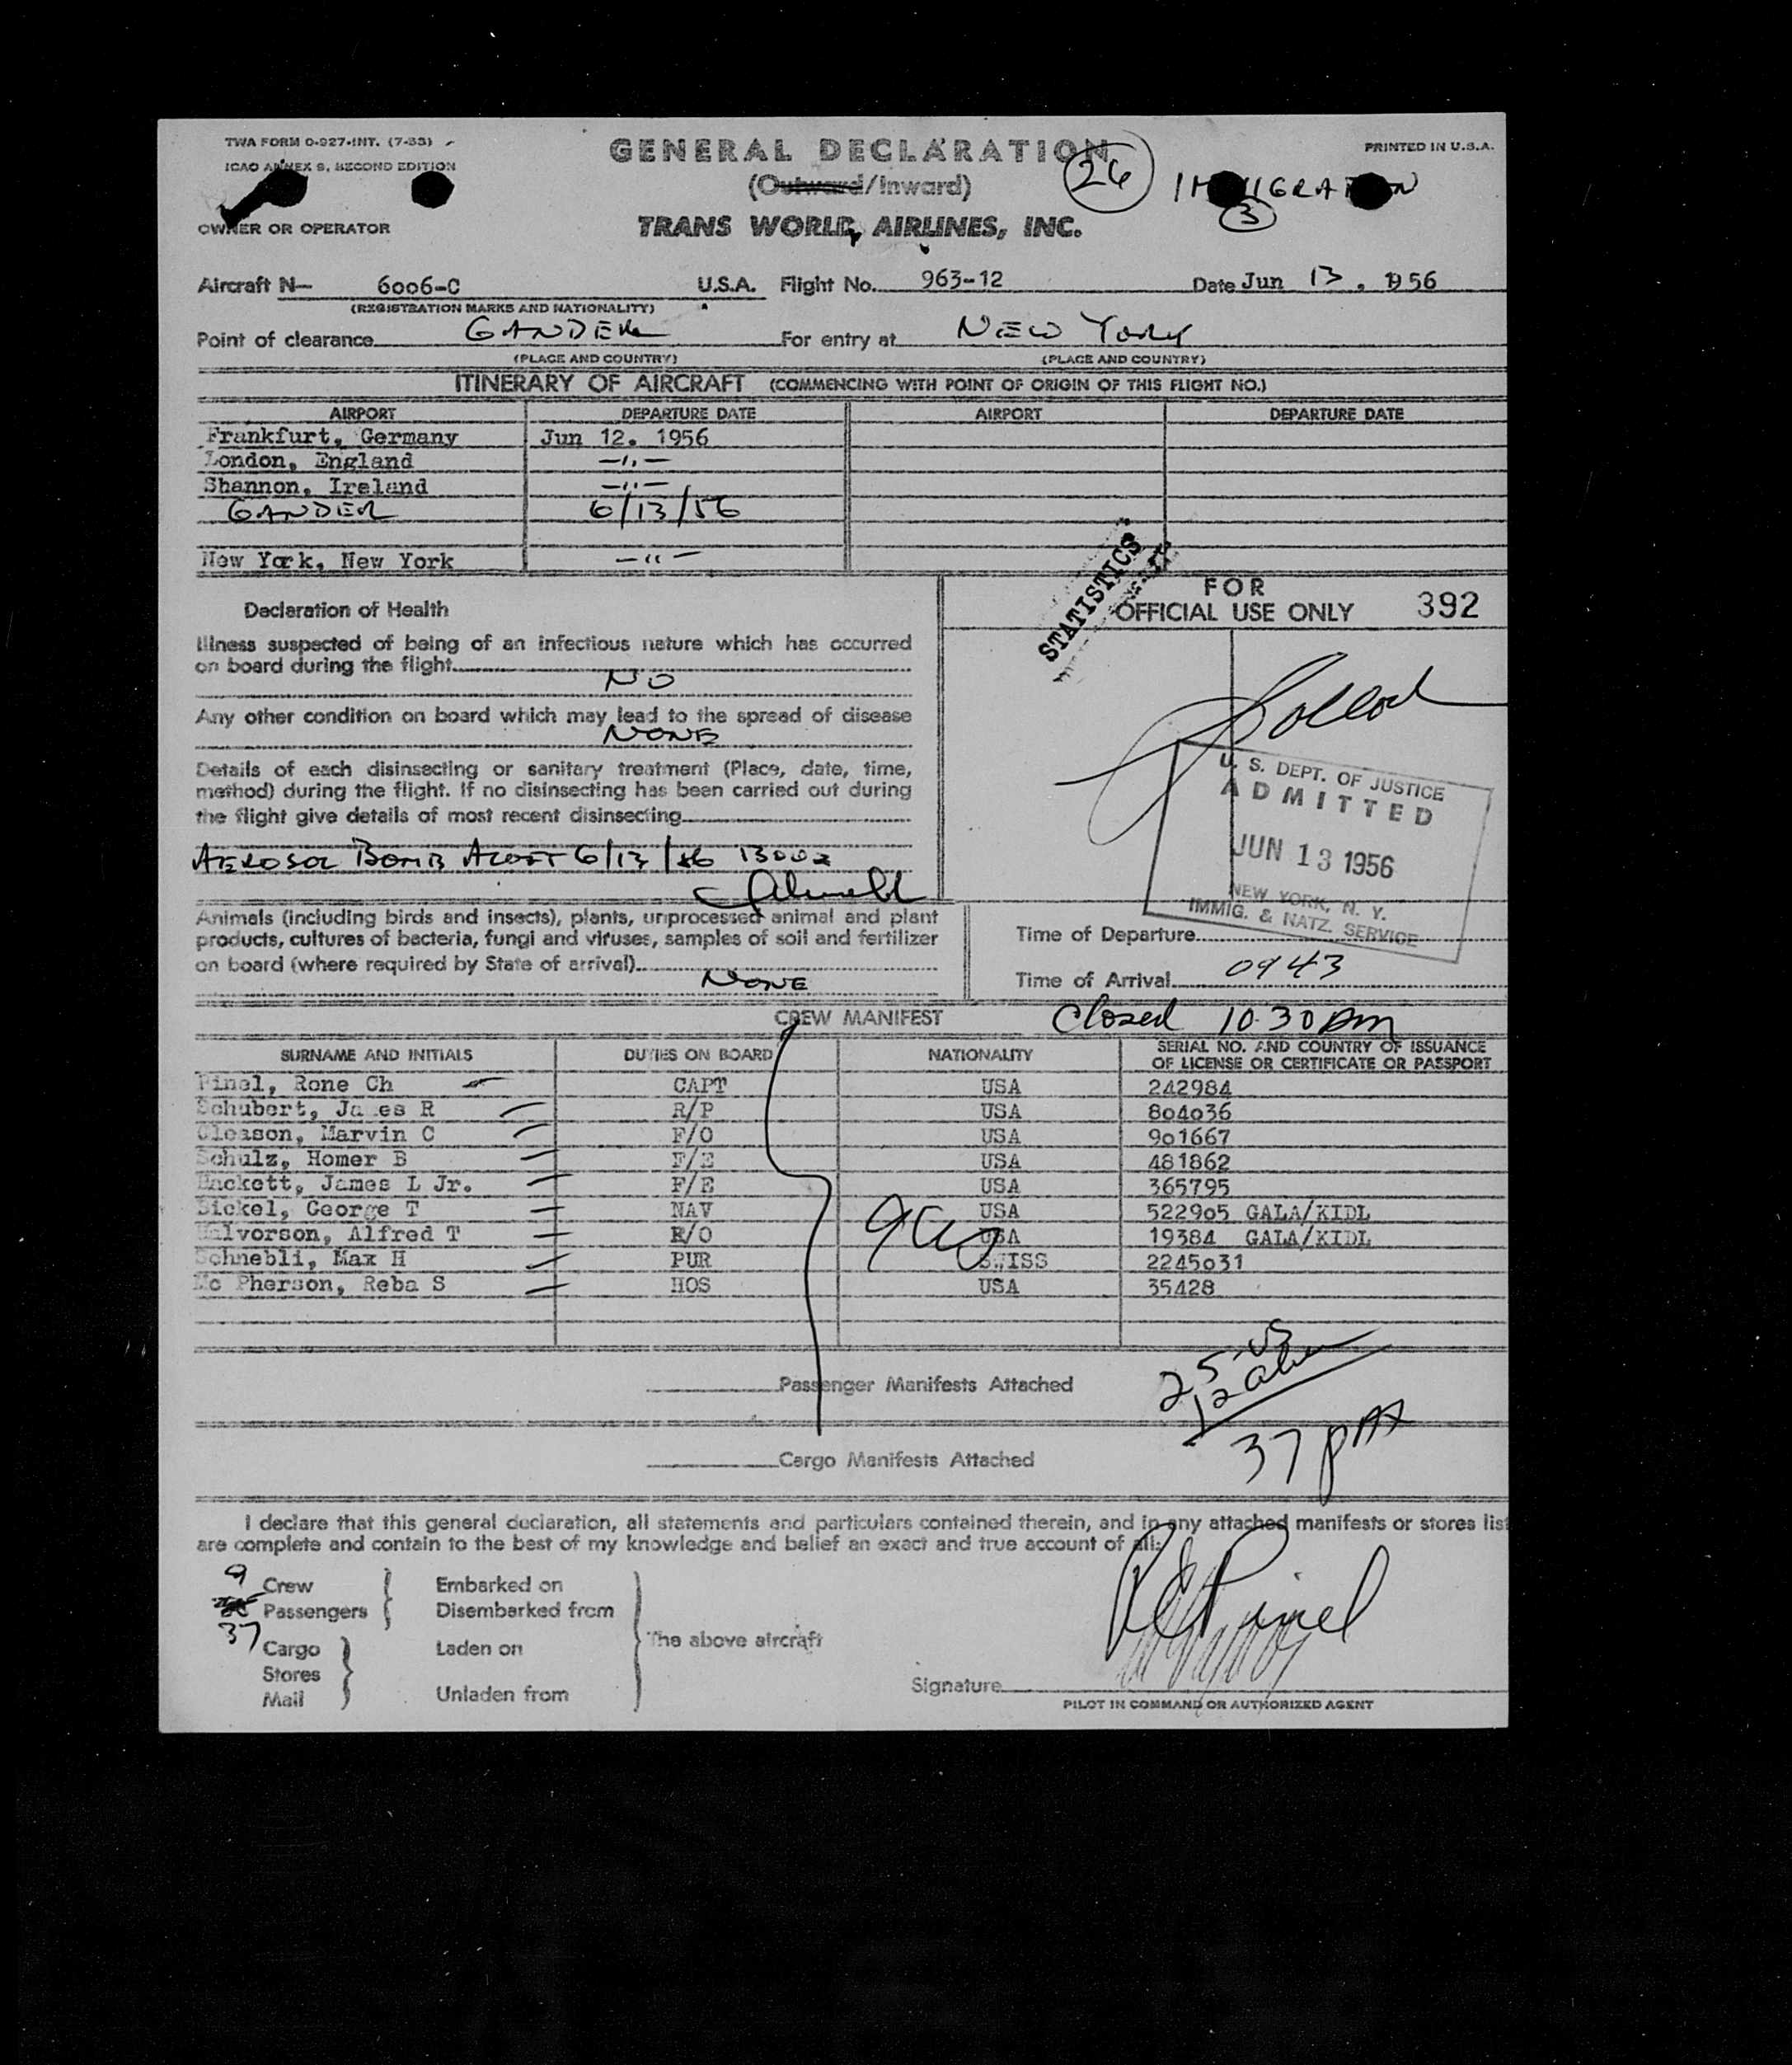 TWA FORM O-927-INT. (7-53)
ICAO ANNEX 9, SECOND EDITION
GENERAL DECLARATION
(Outward/Inward)
26
PRINTED IN U.S.A.
IMMIGRATION
3
OWNER OR OPERATOR
TRANS WORLD AIRLINES, INC.
Aircraft N— 6006-C U.S.A. Flight No. 963-12 Date Jun 13, 1956
(REGISTRATION MARKS AND NATIONALITY)
Point of clearance GANDER For entry at NEW YORK
(PLACE AND COUNTRY) (PLACE AND COUNTRY)
ITINERARY OF AIRCRAFT (COMMENCING WITH POINT OF ORIGIN OF THIS FLIGHT NO.)
AIRPORT DEPARTURE DATE AIRPORT DEPARTURE DATE
Frankfurt, Germany Jun 12. 1956
London, England —"—
Shannon, Ireland —"—
GANDER 6/13/56
New York, New York —"—
STATISTICS
FOR
OFFICIAL USE ONLY 392
Declaration of Health
Illness suspected of being of an infectious nature which has occurred
on board during the flight
NO
Any other condition on board which may lead to the spread of disease
NONE
Details of each disinsecting or sanitary treatment (Place, date, time,
method) during the flight. If no disinsecting has been carried out during
the flight give details of most recent disinsecting
AEROSOL BOMB ALOFT 6/13/56 1300Z
U. S. DEPT. OF JUSTICE
ADMITTED
JUN 13 1956
NEW YORK, N. Y.
IMMIG. & NATZ. SERVICE
Animals (including birds and insects), plants, unprocessed animal and plant
products, cultures of bacteria, fungi and viruses, samples of soil and fertilizer
on board (where required by State of arrival)
NONE
Time of Departure
Time of Arrival 0943
CREW MANIFEST Closed 10 30 am
SURNAME AND INITIALS DUTIES ON BOARD NATIONALITY SERIAL NO. AND COUNTRY OF ISSUANCE
OF LICENSE OR CERTIFICATE OR PASSPORT
Pinel, Rone Ch CAPT USA 242984
Schubert, James R R/P USA 804036
Gleason, Marvin C F/O USA 901667
Schulz, Homer B F/E USA 481862
Hackett, James L Jr. F/E USA 365795
Bickel, George T NAV USA 522905 GALA/KIDL
Halvorson, Alfred T R/O USA 19384 GALA/KIDL
Schnebli, Max H PUR SWISS 2245031
Mc Pherson, Reba S HOS USA 35428
25 US
12 alien
Passenger Manifests Attached
37 pax
Cargo Manifests Attached
I declare that this general declaration, all statements and particulars contained therein, and in any attached manifests or stores list
are complete and contain to the best of my knowledge and belief an exact and true account of all:
9 Crew Embarked on
Passengers Disembarked from
37
Cargo Laden on The above aircraft
Stores
Mail Unladen from
Signature R C Pinel
PILOT IN COMMAND OR AUTHORIZED AGENT